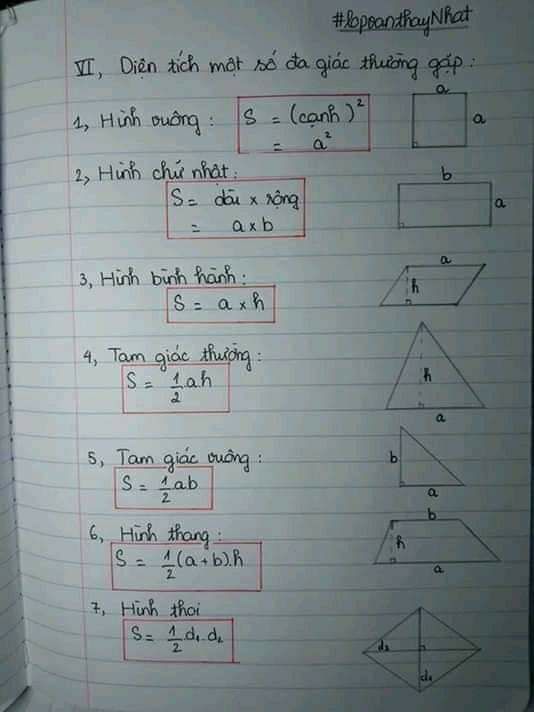 #lopoanthayNhat
VI, Diện tích một số đa giác thường gặp:
1, Hình vuông: S = (cạnh)²
= a²
a
a
2, Hình chữ nhật:
S = dài x rộng
= a x b
b
a
3, Hình bình hành:
S = a x h
a
h
4, Tam giác thường:
S = 1/2 ah
h
a
5, Tam giác vuông:
S = 1/2 ab
b
a
6, Hình thang:
S = 1/2 (a + b).h
b
h
a
7, Hình thoi
S = 1/2 d₁.d₂
d₂
d₁